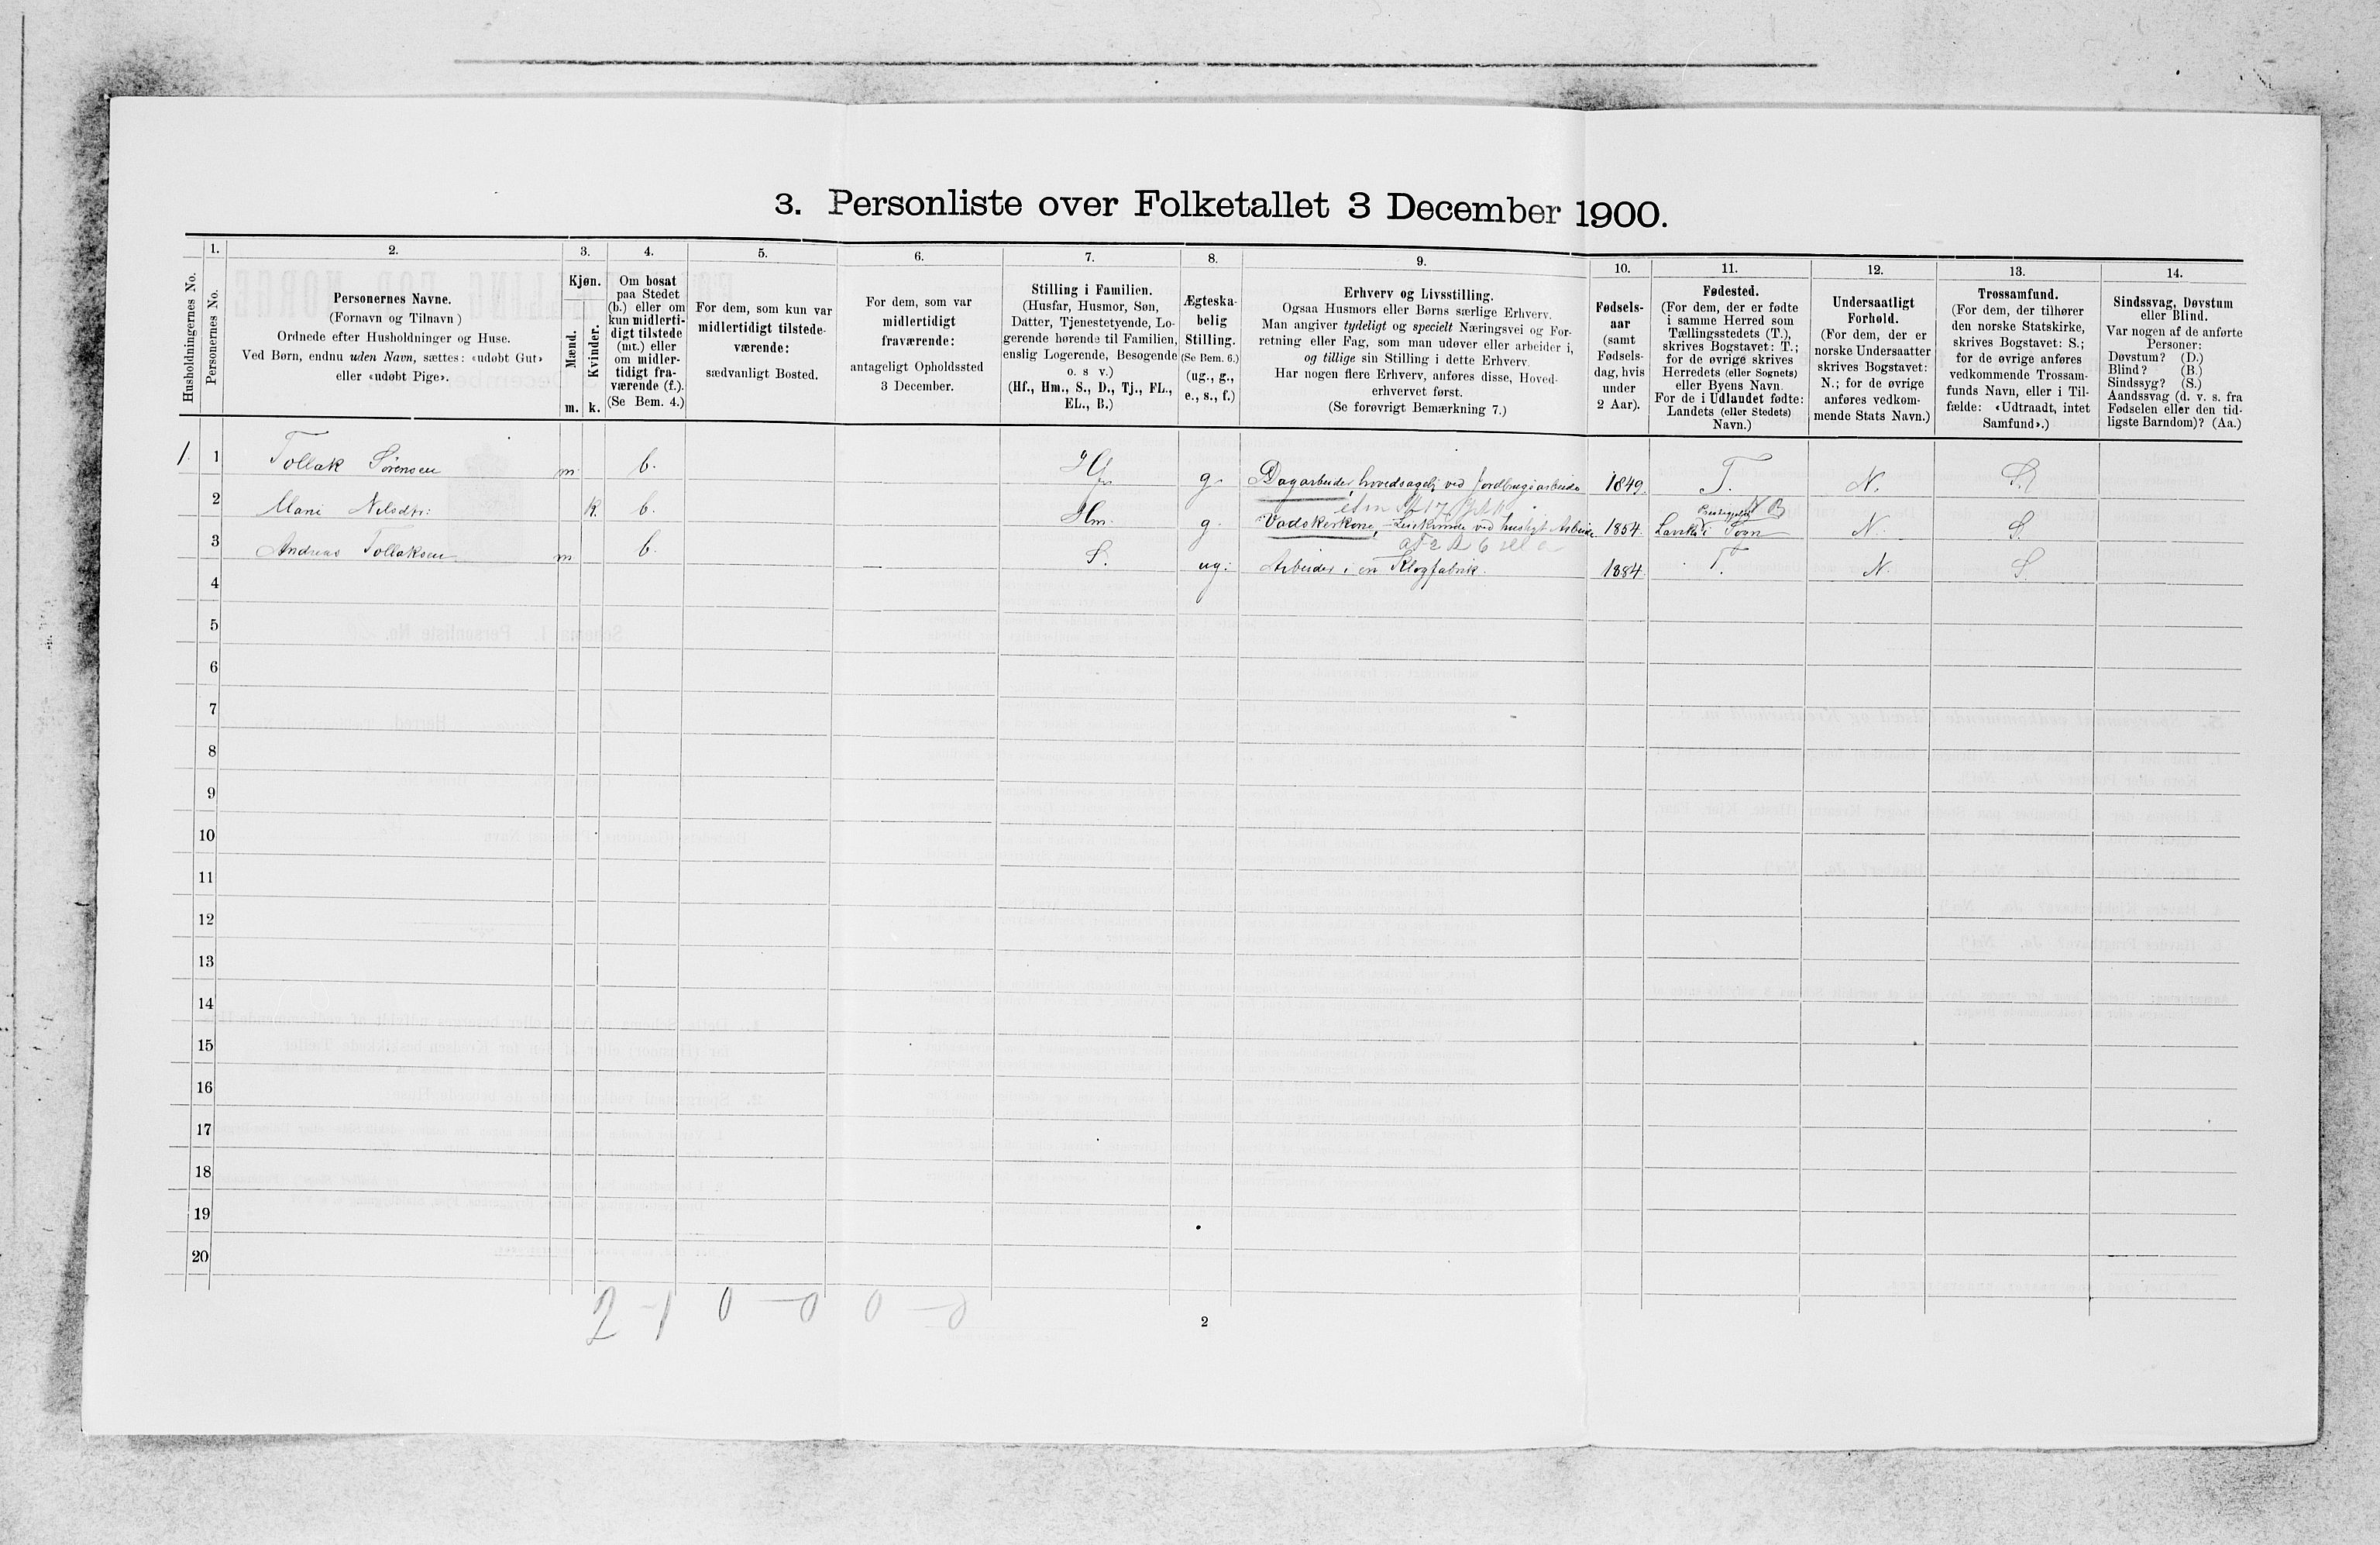 3. Personliste over Folketallet 3 December 1900.
Husholdningernes No.
1.
Personernes No.
2.
Personernes Navne.
(Fornavn og Tilnavn )
Ordnede efter Husholdninger og Huse.
Ved Børn, endnu uden Navn, sættes: «udøbt Gut»
eller «udøbt Pige».
3.
Kjøn.
Mænd.
Kvinder.
m. k.
4.
Om bosat
paa Stedet
(b.) eller om
kun midlerti-
digt tilstede
(mt.) eller
om midler-
tidigt fra-
værende (f.).
(Se Bem. 4.)
5.
For dem, som kun var
midlertidigt tilstede-
værende:
sædvanligt Bosted.
6.
For dem, som var
midlertidigt
fraværende:
antageligt Opholdssted
3 December.
7.
Stilling i Familien.
(Husfar, Husmor, Søn,
Datter, Tjenestetyende, Lo-
gerende hørende til Familien,
enslig Logerende, Besøgende
o. s v.)
(Hf., Hm., S., D., Tj., FL.,
EL., B.)
8.
Ægteska-
belig
Stilling.
(Se Bem. 6.)
(ug., g.,
e., s., f.)
9.
Erhverv og Livsstilling.
Ogsaa Husmors eller Børns særlige Erhverv.
Man angiver tydeligt og specielt Næringsvei og For-
retning eller Fag, som man udøver eller arbeider i,
og tillige sin Stilling i dette Erhverv.
Har nogen flere Erhverv, anføres disse, Hoved-
erhvervet først.
(Se forøvrigt Bemærkning 7.)
10.
Fødsels-
aar
(samt
Fødsels-
dag, hvis
under
2 Aar).
11.
Fødested.
(For dem, der er fødte
i samme Herred som
Tællingsstedets (T.),
skrives Bogstavet: T.;
for de øvrige skrives
Herredets (eller Sognets)
eller Byens Navn.
For de i Udlandet fødte:
Landets (eller Stedets)
Navn.)
12.
Undersaatligt
Forhold.
(For dem, der er
norske Undersaatter
skrives Bogstavet:
N.; for de øvrige
anføres vedkom-
mende Stats Navn.)
13.
Trossamfund.
(For dem, der tilhører
den norske Statskirke,
skrives Bogstavet: S.;
for de øvrige anføres
vedkommende Trossam-
funds Navn, eller i Til-
fælde: «Udtraadt, intet
Samfund».)
14.
Sindssvag, Døvstum
eller Blind.
Var nogen af de anførte
Personer:
Døvstum? (D.)
Blind? (B.)
Sindssyg? (S.)
Aandssvag (d. v. s. fra
Fødselen eller den tid-
ligste Barndom)? (Aa.)
1. 1 Tollak Sörensen m. b. Hf. g. Dagarbeider, hovedsagelig ved Jordbrugsarbeide 1849. T. N. S.
2 Mari Nilsdtr: k. b. Hm. g. Vadskerkone, ved husligt Arbeide 1854. Sogn N. S.
3 Andreas Tollaksen m b. S. ug. Arbeider i en Klogfabrik. 1884. T. N. S.
4
5
6
7
8
9
10
11
12
13
14
15
16
17
18
19
20
2 - 1 0 - 0 0 - 0
2